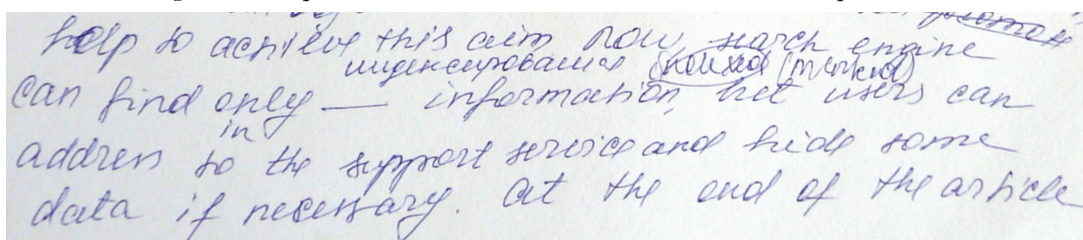 help to achieve this aim now search engine
индексирования
can find only — information, net users can
in
address to the support service and hide some
data if necessary. At the end of the article